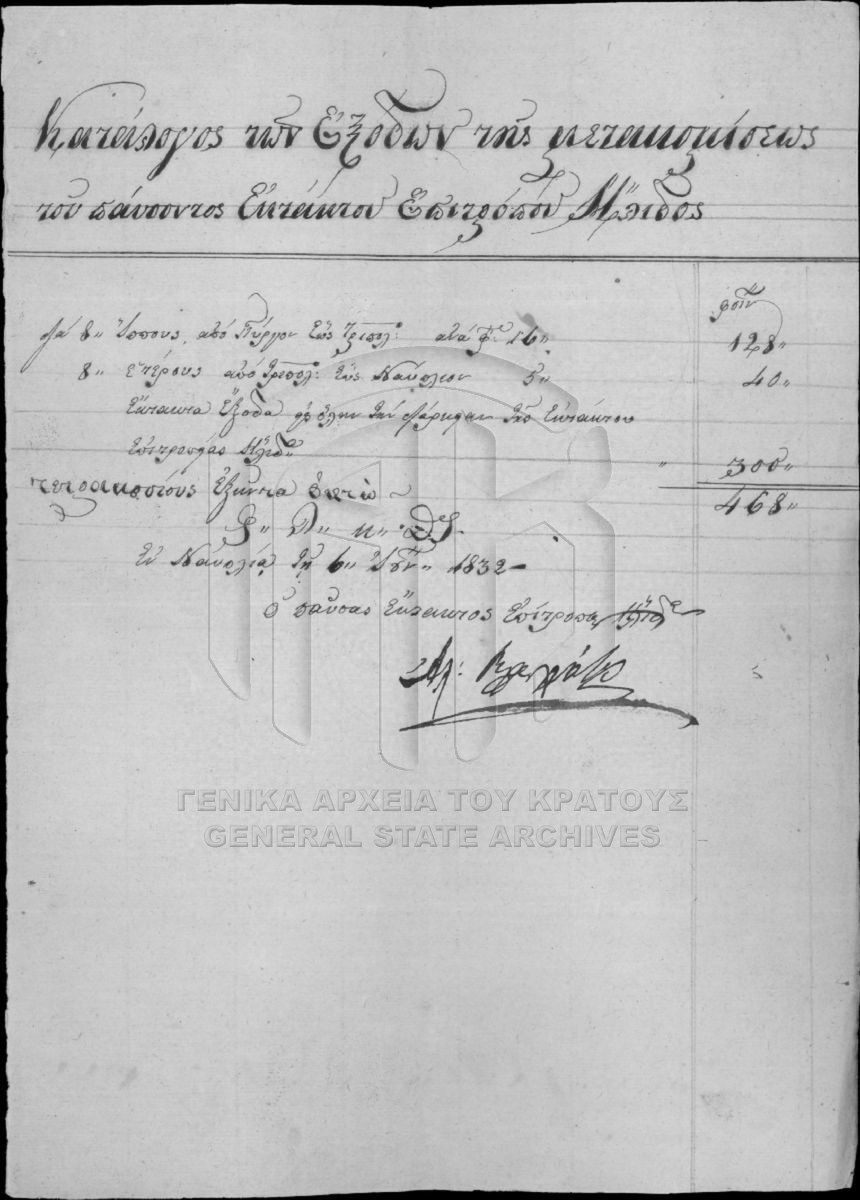 Κατάλογος τῶν Ἐξόδων τῆς μετακομίσεως
τοῦ παύσοντος Ἐκτάκτου Ἐπιτρόπου Ἤλιδος
φοίν
διά 8 " ἵππους, ἀπό Πύργον ἕως Τριπολ: ἀνά φ: 16 " 128 "
8 " ἑτέρους ἀπό Τριπολ: εἰς Ναύπλιον 5 " 40 "
Ἔκτακτα ἔξοδα δι' ὅλην τήν διάρκειαν τῆς ἐκτάκτου
ἐπιτροπείας Ἤλιδ " 300 "
τετρακοσίους ἑξῆντα ὀκτώ 468 "
Ἐν Ναυπλίᾳ τῇ 6 " 1832 -
ὁ παύσας ἔκτακτος ἐπίτροπος Ἤλιδ
ΓΕΝΙΚΑ ΑΡΧΕΙΑ ΤΟΥ ΚΡΑΤΟΥΣ
GENERAL STATE ARCHIVES